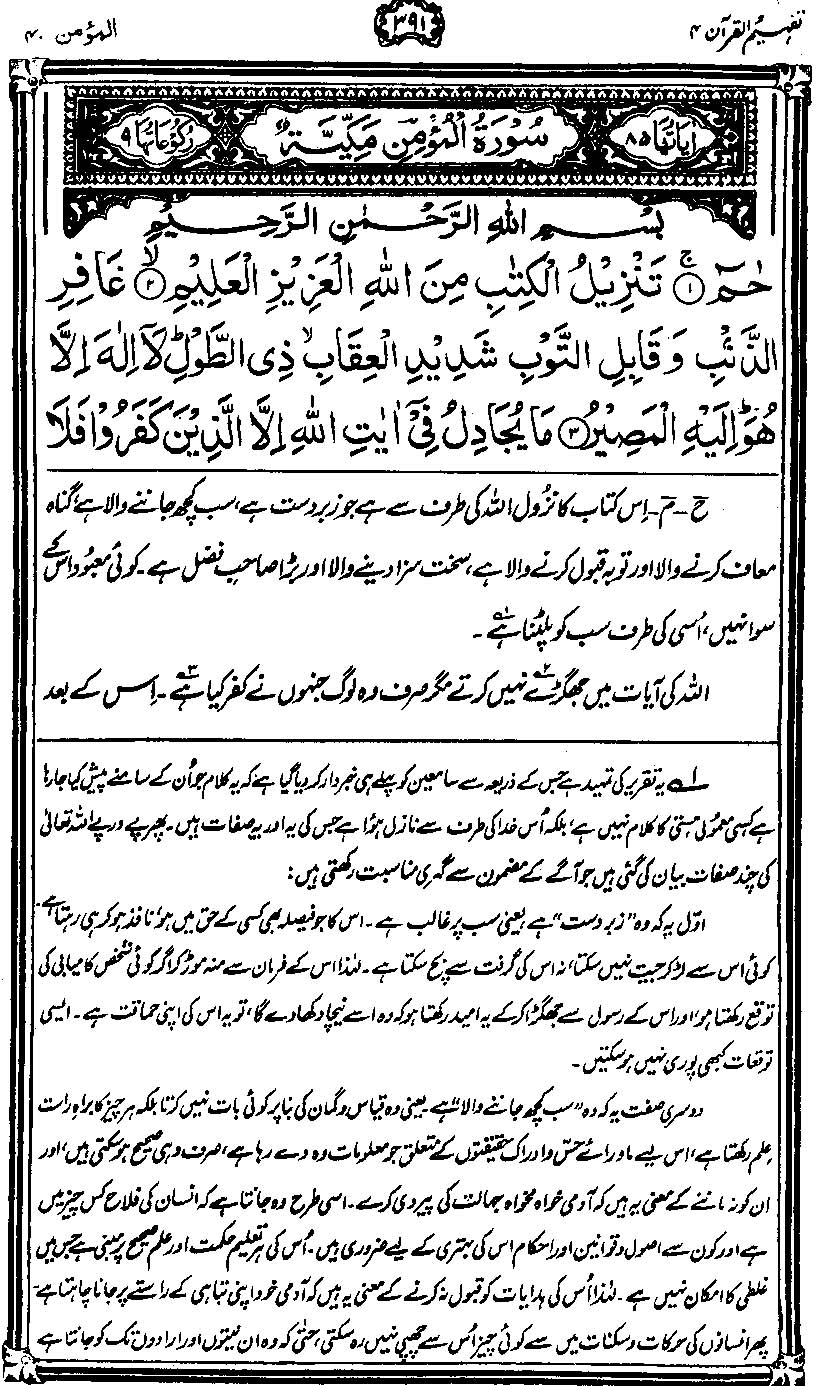 تفہیم القرآن ۴
۳۹۱
المؤمن ۴۰
اٰیَاتُهَا ۸۵
سُوْرَةُ الْمُؤْمِنِ مَكِّيَّةٌ
رُكُوْعَاتُهَا ۹
بِسْمِ اللّٰهِ الرَّحْمٰنِ الرَّحِيْمِ
حٰمٓ ۚ﴿۱﴾ تَنْزِيْلُ الْكِتٰبِ مِنَ اللّٰهِ الْعَزِيْزِ الْعَلِيْمِ ۙ﴿۲﴾ غَافِرِ
الذَّنْۢبِ وَقَابِلِ التَّوْبِ شَدِيْدِ الْعِقَابِ ۙ ذِی الطَّوْلِ ؕ لَاۤ اِلٰهَ اِلَّا
هُوَ ؕ اِلَيْهِ الْمَصِيْرُ ﴿۳﴾ مَا يُجَادِلُ فِیْۤ اٰيٰتِ اللّٰهِ اِلَّا الَّذِيْنَ كَفَرُوْا فَلَا
حٓ - مٓ - اِس کتاب کا نزُول اللہ کی طرف سے ہے جو زبردست ہے، سب کچھ جاننے والا ہے، گناہ
معاف کرنے والا اور توبہ قبول کرنے والا ہے، سخت سزا دینے والا اور بڑا صاحبِ فضل ہے۔ کوئی معبُود اس کے
سوا نہیں، اُسی کی طرف سب کو پلٹنا ہے۱۔
اللہ کی آیات میں جھگڑے۲ نہیں کرتے مگر صرف وہ لوگ جنہوں نے کفر کیا ہے۳۔ اِس کے بعد
۱ یہ تقریر کی تمہید ہے جس کے ذریعہ سے سامعین کو پہلے ہی خبردار کر دیا گیا ہے کہ یہ کلام جو اُن کے سامنے پیش کیا جا رہا
ہے کسی معمولی ہستی کا کلام نہیں ہے، بلکہ اُس خدا کی طرف سے نازل ہؤا ہے جس کی یہ اور یہ صفات ہیں۔ پھر پے در پے اللہ تعالیٰ
کی چند صفات بیان کی گئی ہیں جو آگے کے مضمون سے گہری مناسبت رکھتی ہیں:
اوّل یہ کہ وہ "زبردست" ہے یعنی سب پر غالب ہے۔ اس کا جو فیصلہ بھی کسی کے حق میں ہو، نافذ ہو کر ہی رہتا ہے۔
کوئی اس سے لڑ کر جیت نہیں سکتا، نہ اس کی گرفت سے بچ سکتا ہے۔ لہٰذا اس کے فرمان سے منہ موڑ کر اگر کوئی شخص کامیابی کی
توقع رکھتا ہو، اور اس کے رسول سے جھگڑا کر کے یہ امید رکھتا ہو کہ وہ اسے نیچا دکھا دے گا، تو یہ اس کی اپنی حماقت ہے۔ ایسی
توقعات کبھی پوری نہیں ہو سکتیں۔
دوسری صفت یہ کہ وہ "سب کچھ جاننے والا" ہے یعنی وہ قیاس و گمان کی بنا پر کوئی بات نہیں کرتا بلکہ ہر چیز کا براہِ راست
علم رکھتا ہے، اس لیے ماورائے حِس و ادراک حقیقتوں کے متعلق جو معلومات وہ دے رہا ہے، صرف وہی صحیح ہو سکتی ہیں، اور
ان کو نہ ماننے کے معنی یہ ہیں کہ آدمی خواہ مخواہ جہالت کی پیروی کرے۔ اسی طرح وہ جانتا ہے کہ انسان کی فلاح کس چیز میں
ہے اور کون سے اصول و قوانین اور احکام اس کی بہتری کے لیے ضروری ہیں۔ اُس کی ہر تعلیم حکمت اور علمِ صحیح پر مبنی ہے جس میں
غلطی کا امکان نہیں ہے۔ لہٰذا اُس کی ہدایات کو قبول نہ کرنے کے معنی یہ ہیں کہ آدمی خود اپنی تباہی کے راستے پر جانا چاہتا ہے۔
پھر انسانوں کی حرکات و سکنات میں سے کوئی چیز اُس سے چھپی نہیں رہ سکتی، حتیٰ کہ وہ ان نیتوں اور ارادوں تک کو جانتا ہے